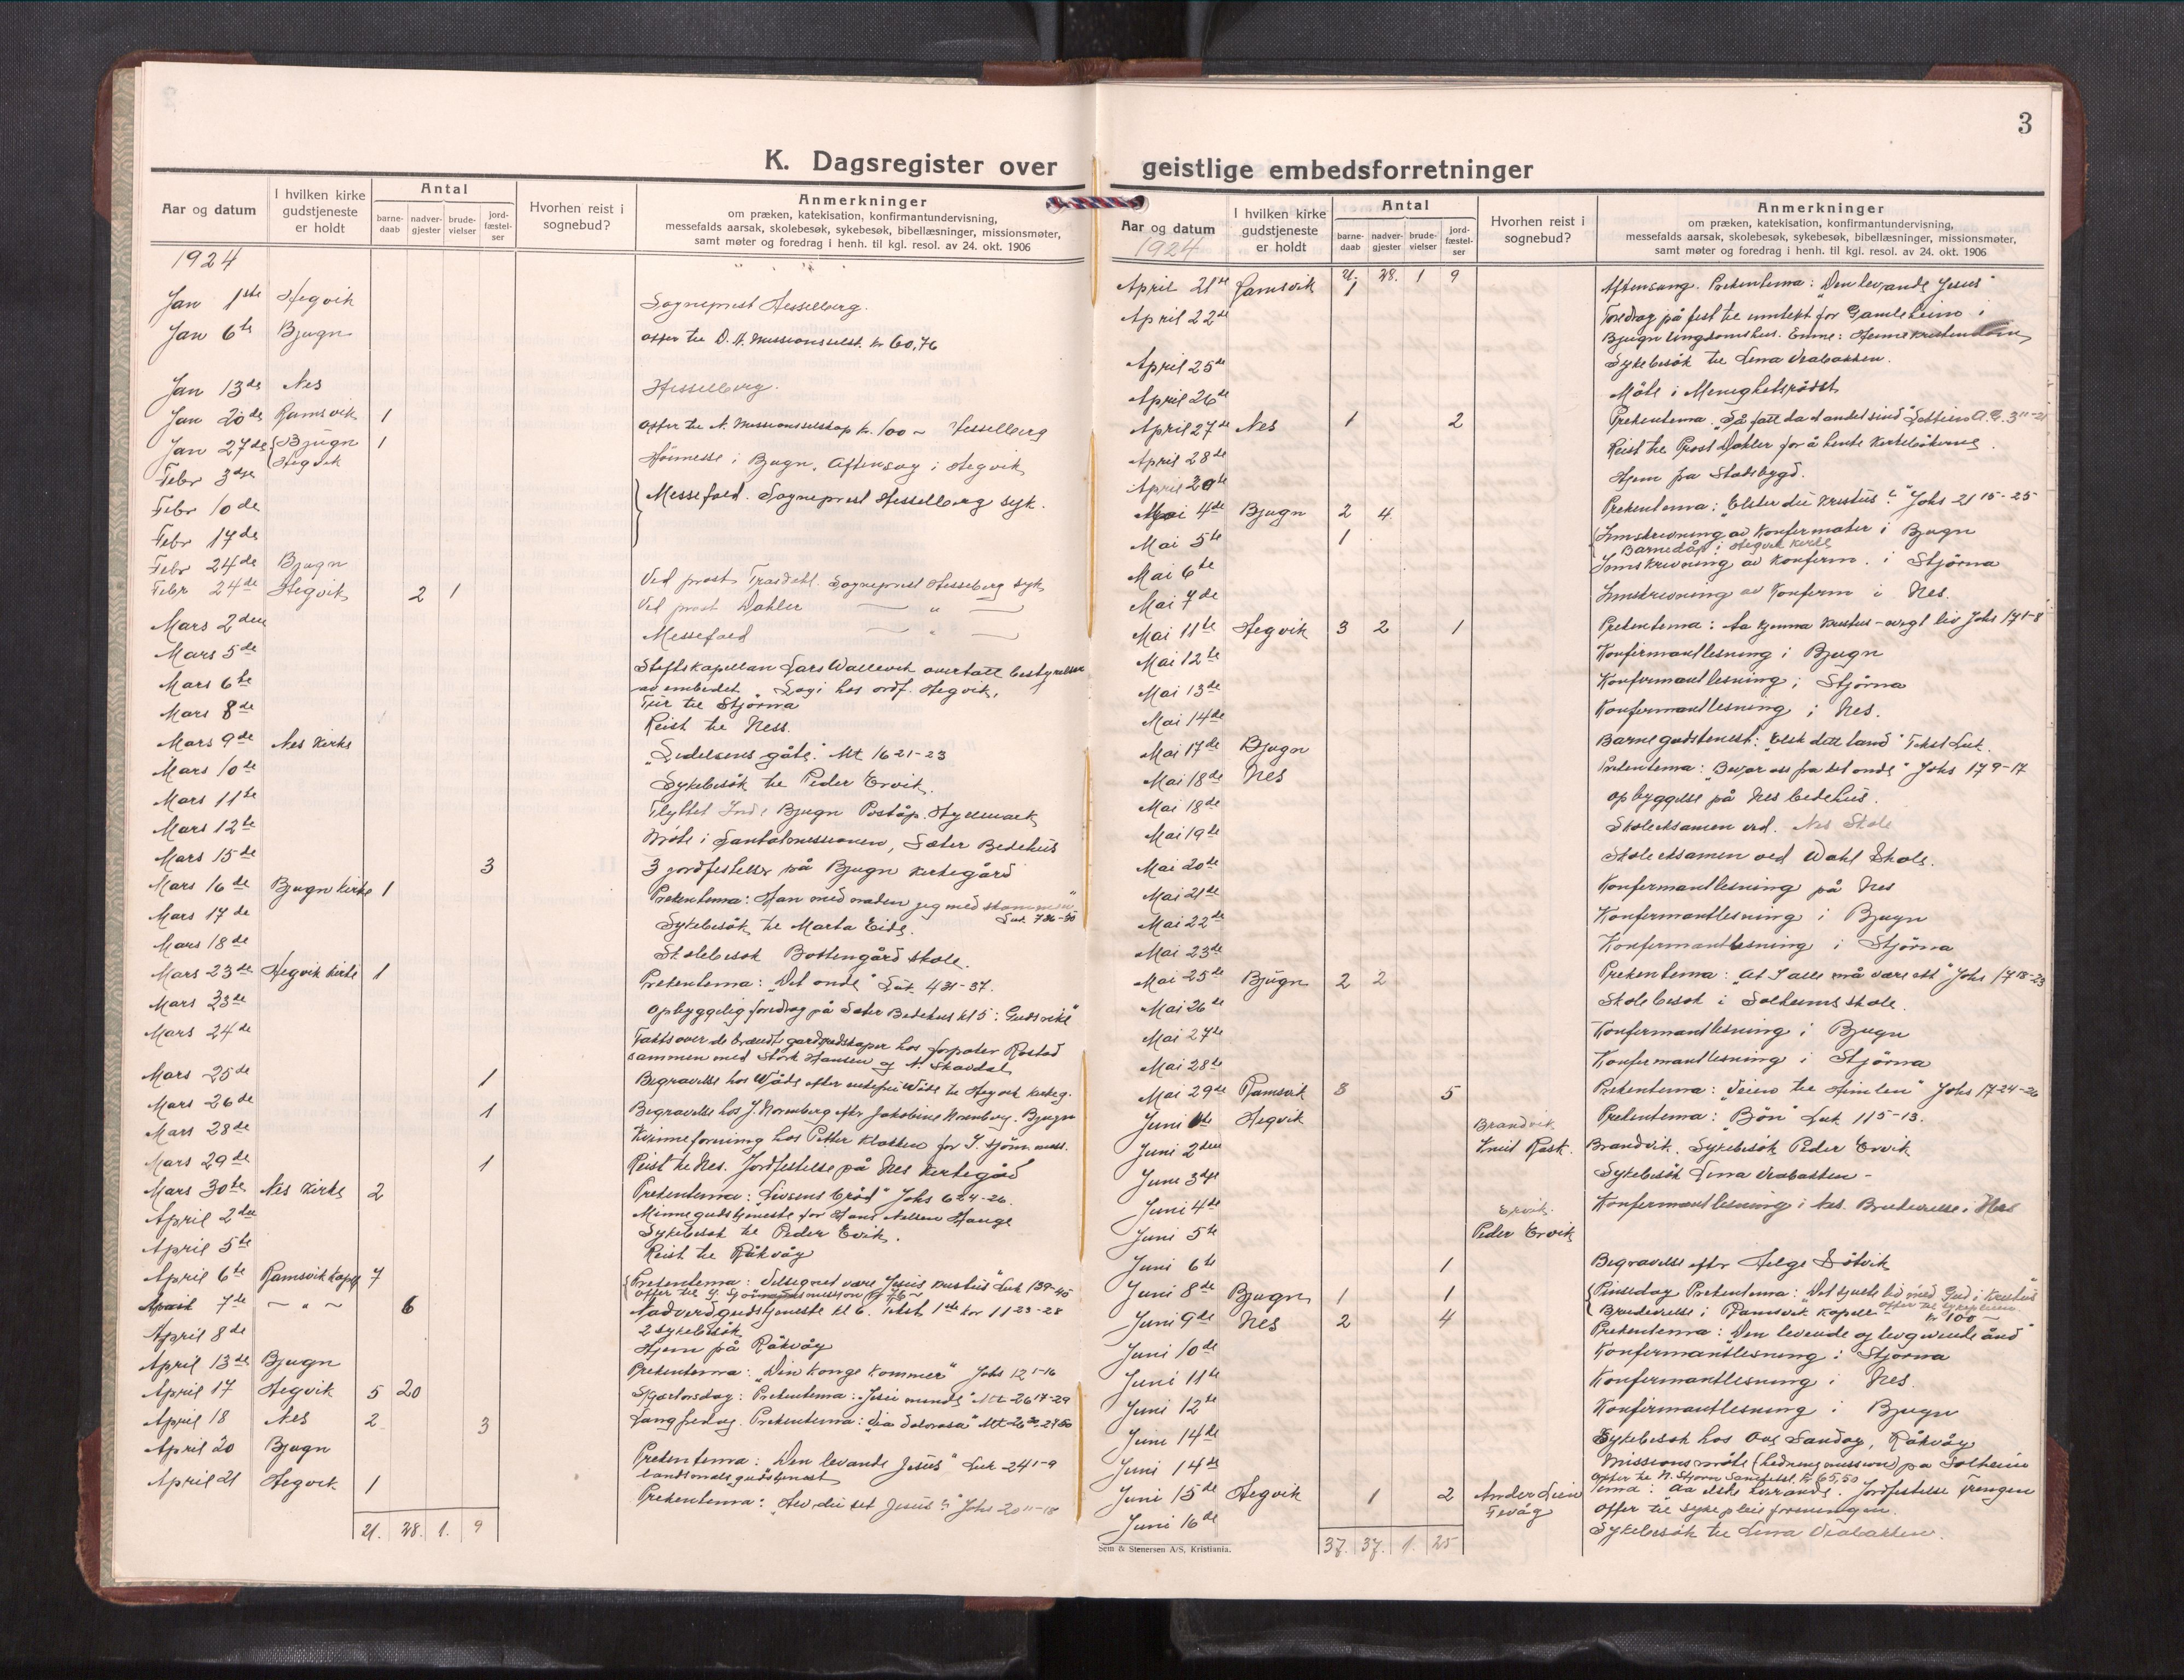 3
K. Dagsregister over geistlige embedsforretninger
Aar og datum
I hvilken kirke gudstjeneste er holdt
Antal
barne-daab
nadver-gjester
brude-vielser
jord-fæstel-ser
Hvorhen reist i sognebud?
Anmerkninger
om præken, katekisation, konfirmantundervisning,
messefalds aarsak, skolebesøk, sykebesøk, bibellæsninger, missionsmøter,
samt møter og foredrag i henh. til kgl. resol. av 24. okt. 1906
1924
Jan 1ste Hegvik Sogneprest Hesselberg.
Jan 6te Bjugn offer til D. N. Missionsselsk. kr 60,76
Jan 13de Nes Hesselberg.
Jan 20de Ramsvik 1 offer til N. Missionsselskap kr. 100 ~ Hesselberg
Jan 27de Bjugn 1 Høimesse i Bjugn, Aftensang i Hegvik
Hegvik
Febr 3dje Messefald. Sogneprest Hesselberg syk.
Febr 10de
Febr 17de
Febr 24de Bjugn Ved prost Sogneprest Hesselberg syk
Febr 24de Hegvik 2 1 Ved prost Dahler — " —
Mars 2den Messefald — " —
Mars 5de Stiftskapellan Lars Wallevik overtatt bestyrelsen
av embedet. Logi hos ordf. Hegvik.
Mars 6te Tur til Stjørna
Mars 8de Reist til Ness.
Mars 9de Nes Kirke "Lidelsens gåte." Mt 16 21-23
Mars 10de Sykebesök til Peder Ervik.
Mars 11te Flyttet Bjugn Poståp.
Mars 12te Möte i Santalmissionen, Sæter Bedehus
Mars 15de 3 3 jordfestelser på Bjugn kirkegård
Mars 16de Bjugn kirke 1 Prekentema: Han med naden jeg med skammen"
Luk. 7 36-50
Mars 17de Sykebesök til Marta Eide.
Mars 18de Skolebesök Bottengård skole.
Mars 23de Hegvik kirke 1 Prekentema: "Det onde" Luk 4 31-37.
Mars 23de Opbyggelig foredrag på Sæter Bedehus kl 5: Guds rike"
Mars 24de Takst over de brændte gardredskaper hos forpakter Rostad
sammen med Störk Hansen og N. Skavdal
Mars 25de 1 Begravelse hos Wåde efter Wåde til Hegvik kirkeg.
Mars 26de 1 Begravelse hos J. Norenberg eftr Jakobine Norenberg. Bjugn
Mars 28de Kvinneforening hos Petter Klakken for I. sjöm. miss.
Mars 29de 1 Reist til Nes. Jordfestelse på Nes kirkegård
Mars 30te Nes Kirke 2 Prekentema: "Livsens bröd" Johs 6 24-26.
April 2den Minnegudstjeneste for Hans Nilsen Hauge
Sykebesök til Peder Ervik.
April 5te Reist til Råkvåg
April 6te Ramsvik kapel 7 Prekentema: Velsignet være Jesus Kristus" Luk 1 39-45
April 7de — " — 6 Nadverdgudstjeneste kl 6. Tekst 1ste kor 11 23-28
April 8de 2 sykebesök
Hjem på Råkvåg
April 13de Bjugn Prekentema: "Din konge kommer" Johs 12 1-16
April 17 Hegvik 5 20 Skjærtorsdag: Prekentema: Jesu minde" Mt 26 17-29
April 18 Nes 2 3 Langfredag. Prekentema: "Via dolorosa"
April 20 Bjugn Prekentema: "Den levande Jesus" Luk 24 1-9
landsmålsgudstjenest
April 21 Hegvik 1 Prekentema: "Har du set Jesus?" Johs 20 11-18
21. 28. 1. 9
Aar og datum
1924
I hvilken kirke gudstjeneste er holdt
Antal
barne-daab
nadver-gjester
brude-vielser
jord-fæstel-ser
Hvorhen reist i sognebud?
Anmerkninger
om præken, katekisation, konfirmantundervisning,
messefalds aarsak, skolebesøk, sykebesøk, bibellæsninger, missionsmøter,
samt møter og foredrag i henh. til kgl. resol. av 24. okt. 1906
21. 28. 1 9
April 21de Ramsvik 1 Aftensang. Prekentema: "Den levande Jesus"
April 22de Foredrag på fest til inntekt for Gamleheim i
Bjugn Ungdomshus. Emne: Heimekristendom
April 25de Sykebesök til Lina Vrabakken.
April 26de Möte i Menighetsrådet
April 27de Nes 1 2 Prekentema "Så fatt da et andet sind"
April 28de Reist til Prost Dahler for å hente kirkebökerne.
April 29de Hjem fra Stadsbygd.
Mai 4de Bjugn 2 4 Prekentema: "Elsker du Kristus?" Johs 21 15-25
Mai 5te 1 Innskrivning av Konfirmanter i Bjugn
Barnedåp i Hegvik kirke
Mai 6te Innskrivning av konfirm. i Stjörna
Mai 7de Innskrivning av Konfirm i Nes.
Mai 11te Hegvik 3 2 1 Prekentema: Aa kjenna Kristus - evigt liv Johs 17 1-8
Mai 12te Konfirmantlesning i Bjugn
Mai 13de Konfirmantlesning i Stjörna
Mai 14de Konfirmantlesning i Nes.
Mai 17de Bjugn Barnegudstenest: "Elsk ditt land" Tekst Luk.
Mai 18de Nes Prekentema: "Bevar oss fra det onde" Johs 17 9-17
Mai 18de Opbyggelse på Nes bedehus.
Mai 19de Skoleeksamen ved Nes Skole
Mai 20de Skoleeksamen ved Wahl Skole.
Mai 21de Konfirmantlesning på Nes
Mai 22de Konfirmantlesning i Bjugn
Mai 23de Konfirmantlesning i Stjörna
Mai 25de Bjugn 2 2 Prekentema: "At I alle må være ett" Johs 17 18-23
Mai 26de Skolebesök i Solheim skole.
Mai 27de Konfirmantlesning i Bjugn
Mai 28de Konfirmantlesning i Stjörna
Mai 29de Ramsvik 3 5 Prekentema: "Veien til Himlen" Johs 17 24-26
Juni 1ste Hegvik Prekentema: "Bön" Luk 11 5-13.
Juni 2den Brandvik Knut Rask. Brandvik. Sykebesök Peder Ervik
Juni 3dje Sykebesök Lina Vrabakken -
Juni 4de Konfirmantlesning i Nes. Brudevielse i Nes
Juni 5te Ervik Peder Ervik
Juni 6te 1 Begravelse efter Helge
Juni 8de Bjugn 1 1 Pinsedag Prekentema: med Gud i Kristus"
Brudevielse i Ramsvik kapell offer til sykepleien kr 100 ~
Juni 9de Nes 2 4 Prekentema: "Den levende og levgivende ånd"
Juni 10de Konfirmantlesning i Stjörna
Juni 11te Konfirmantlesning i Nes.
Juni 12te Konfirmantlesning i Bjugn
Juni 14de Sykebesök hos Ove Sandöy, Råkvåg
Juni 14de Missionsmöte (hedningmission) på Solheim
Juni 15de Hegvik 1 2 Ander Lien Fevåg Tema: Aa elske hverandre. Jordfestelse
Offer til sykepleieforeningen.
Juni 16de Sykebesök til Lina Vrabakken.
37. 37. 1. 25
Sem & Stenersen A/S, Kristiania.